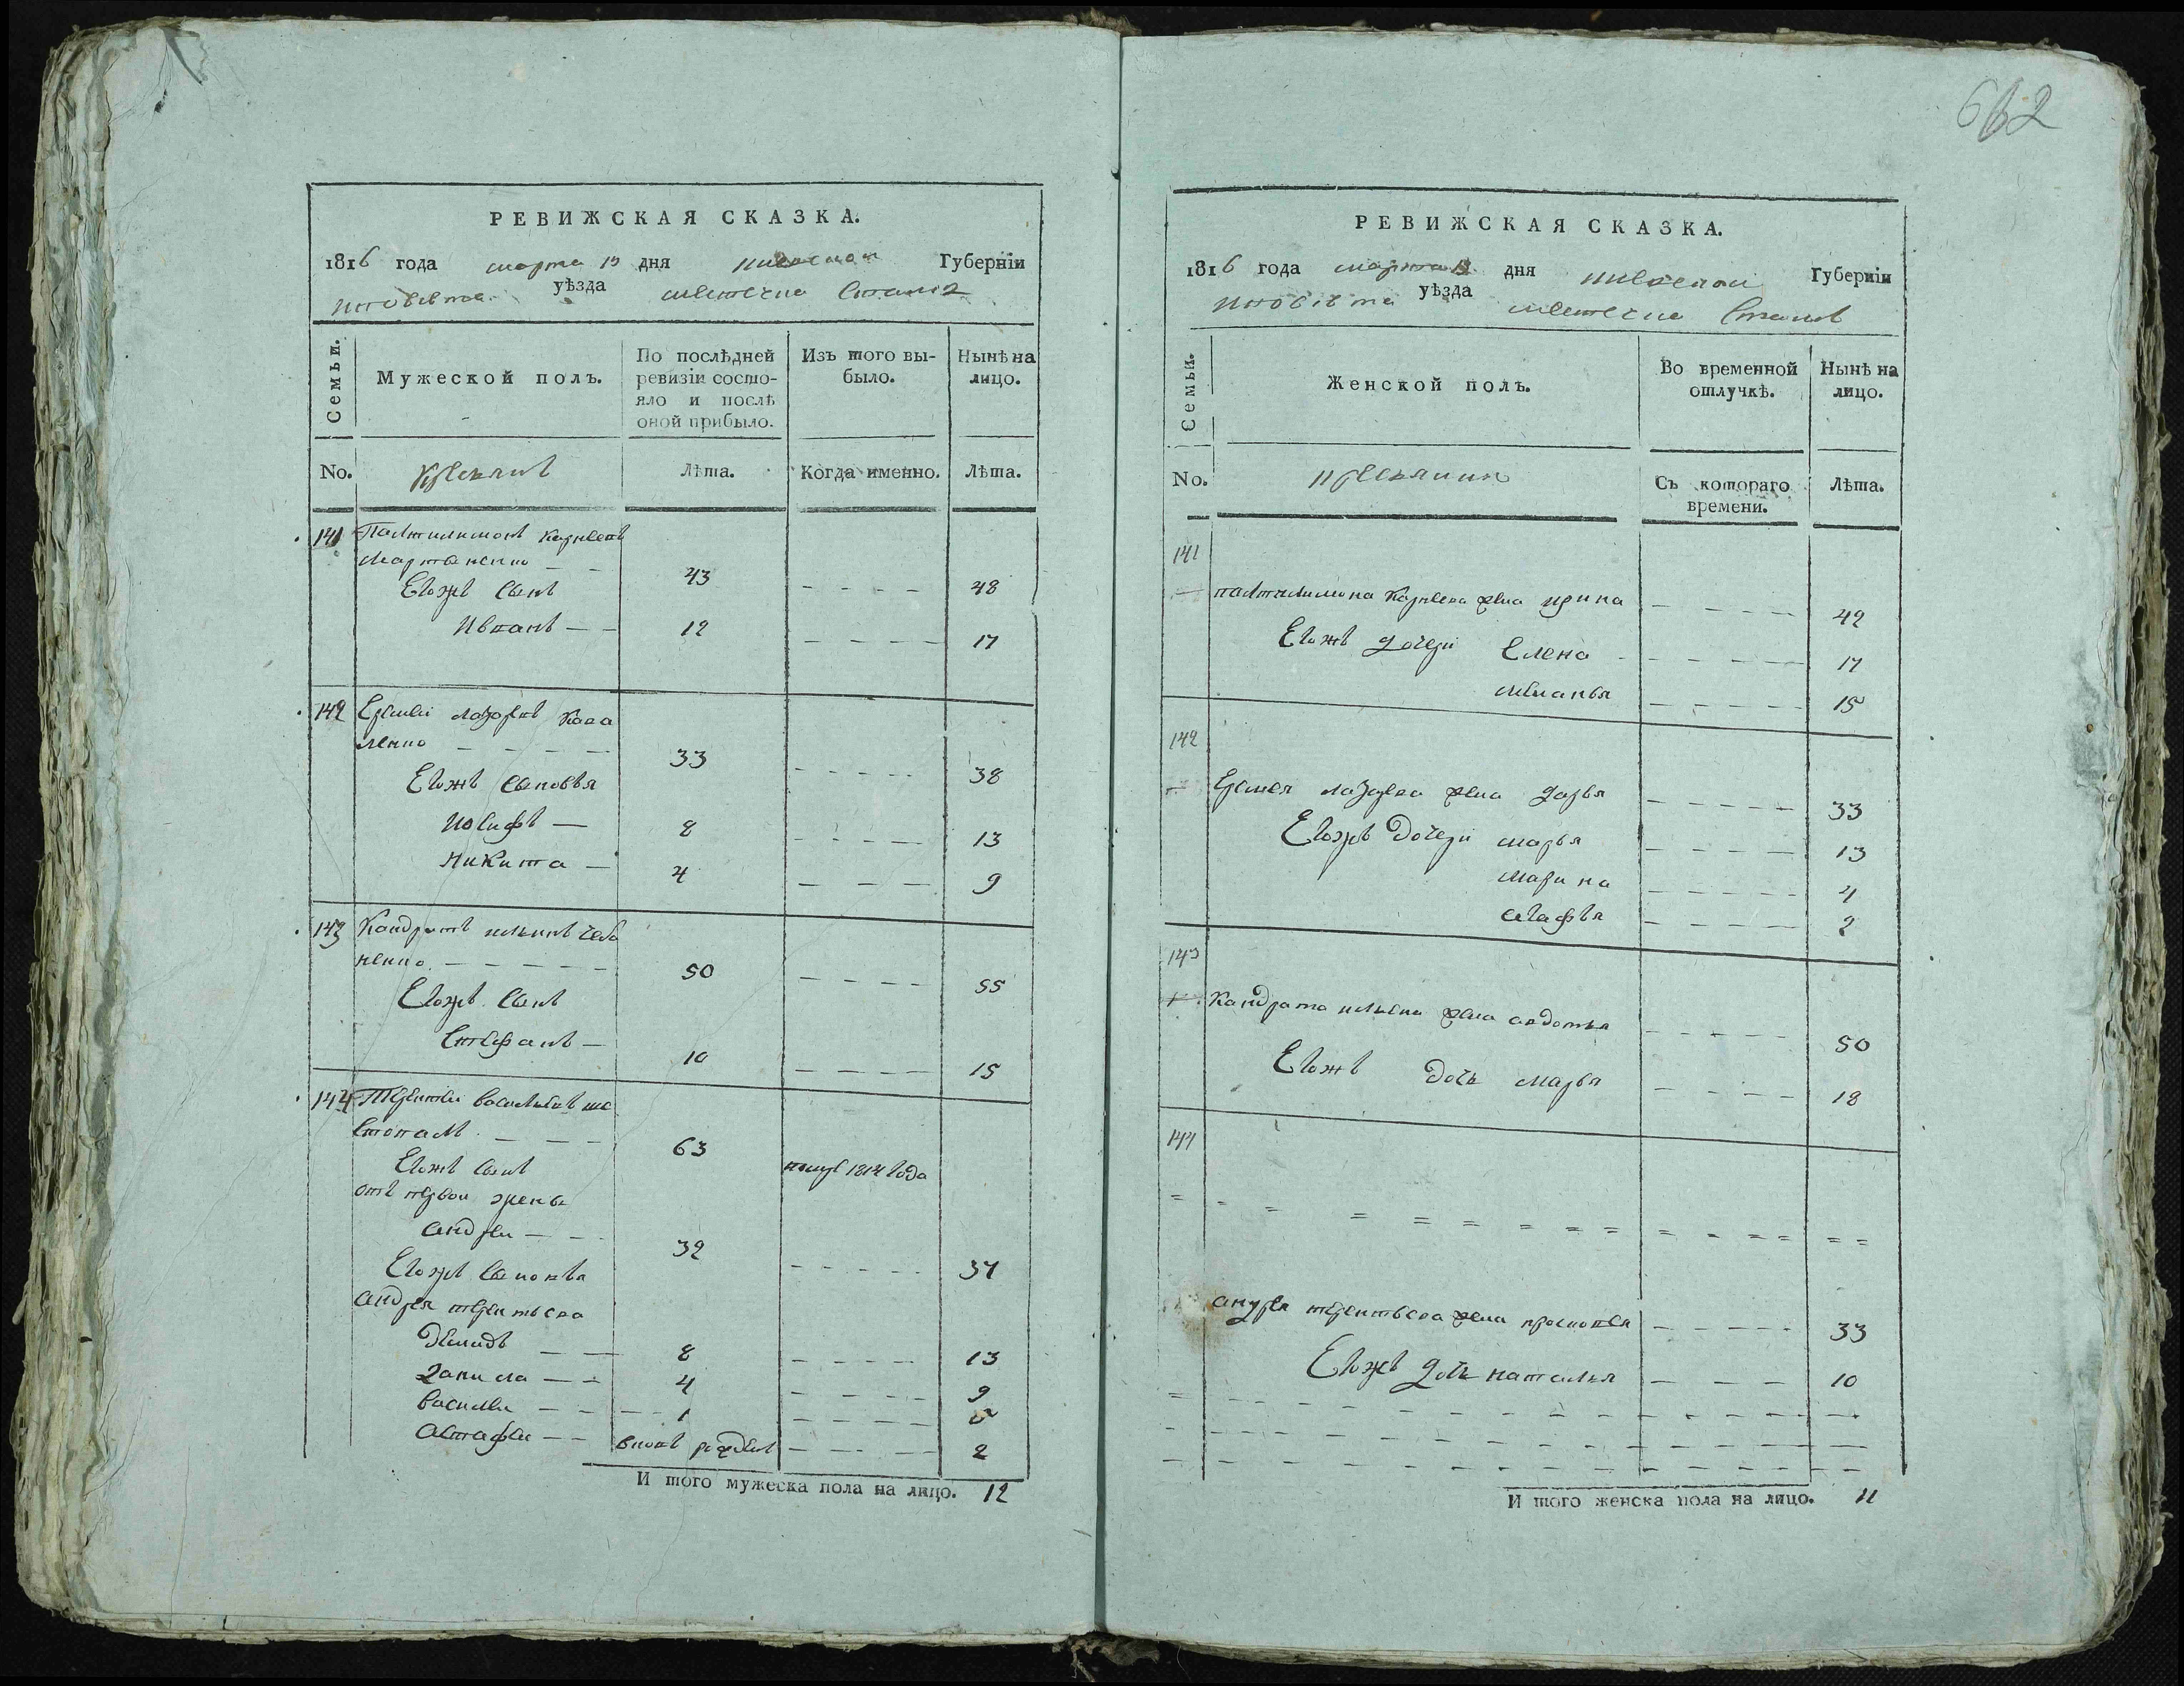 662
РЕВИЖСКАЯ СКАЗКА.
1816 года марта 13 дня Губерніи
уѣзда местечка
Семьи.
Мужеской полъ.
По послѣдней ревизіи состо-
яло и послѣ
оной прибыло.
Изъ того вы-
было.
Нынѣ на
лицо.
No.
Лѣта.
Когда именно.
Лѣта.
141 Пантилимонъ Карнеевъ
Мартыненко 43 48
Егожъ сынъ
Иванъ 12 17
142 Еремѣй Лазаревъ Кова
ленко 33 38
Егожъ сыновья
Иосифъ 8 13
Никита 4 9
143 Кандратъ Ильинъ
ненко 50 55
Егожъ сынъ
Стефанъ 10 15
144 Терентѣй Васильевъ Ше
стопалъ 63 1814 года
Егожъ сынъ
отъ первой жены
Андрѣй 32 37
Егожъ сыновья
Андрея Терентьева
Демидъ 8 13
Данила 4 9
Василѣй 1
Астафѣй вновь рожденъ 2
И того мужеска пола на лицо. 12
РЕВИЖСКАЯ СКАЗКА.
1816 года марта 13 дня Губерніи
уѣзда местечка
Семьи.
Женской полъ.
Во временной
отлучкѣ.
Нынѣ на
лицо.
No.
Съ котораго
времени.
Лѣта.
141
Пантилимона Карнеева жена Ирина 42
Егожъ дочери Елена 17
Меланья 15
142
Еремея Лазарева жена Дарья 33
Егожъ дочери Марья 13
Марина 4
Агафья 2
143
Кандрата Ильина жена Авдотья 50
Егожъ дочь Марья 18
144
Андрея Терентьева жена Просковья 33
Егожъ дочь Наталья 10
И того женска пола на лицо. 11